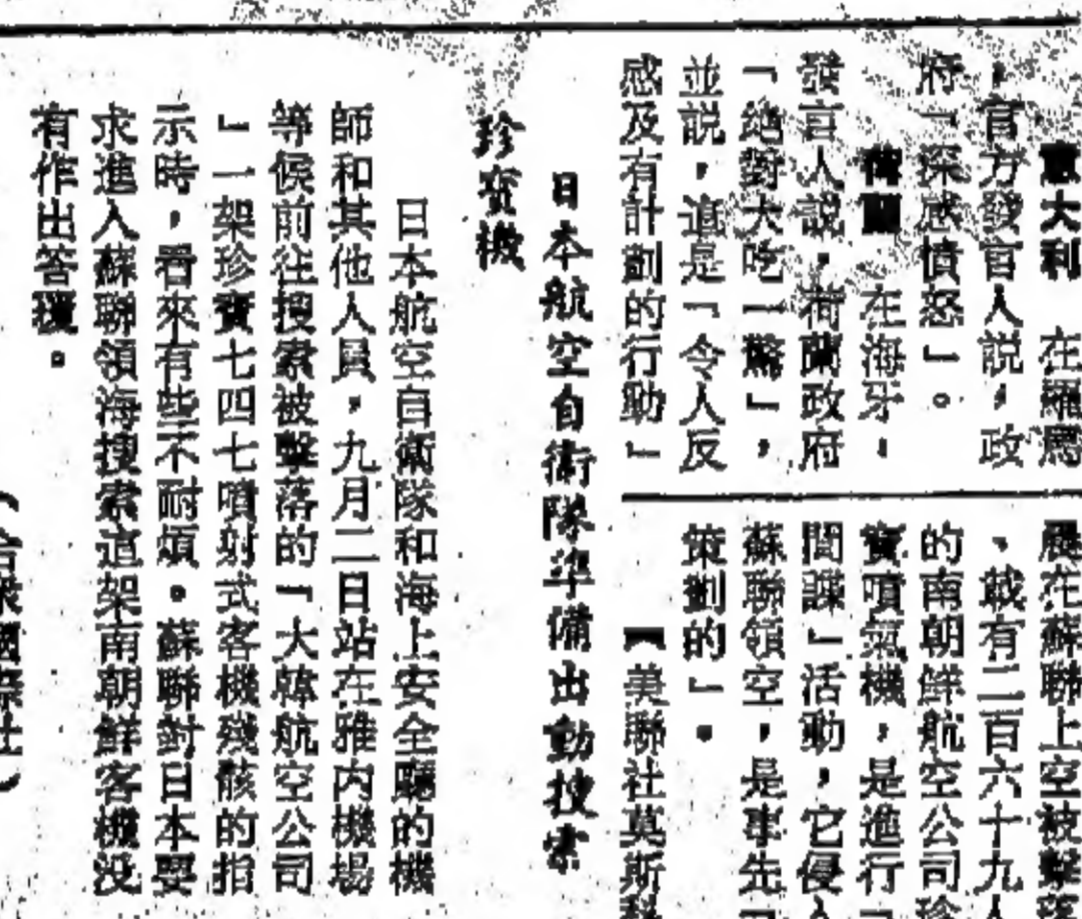 意大利　在羅馬
，官方發言人説，政
府「深感憤怒」。
荷蘭　在海牙，
發言人説，荷蘭政府
「絶對大吃一驚」，
並説，這是「令人反
感及有計劃的行動」
展在蘇聯上空被擊落
、載有二百六十九人
的南朝鮮航空公司珍
寶噴氣機，是進行「
間諜」活動，它侵入
蘇聯領空，是事先「
策劃的」。
【美聯社莫斯科
日本航空自衛隊準備出動搜索
珍寶機
日本航空自衛隊和海上安全廳的機
師和其他人員，九月二日站在雅内機場
等候前往搜索被擊落的「大韓航空公司
」一架珍寶七四七噴射式客機殘骸的指
示時，看來有些不耐煩。蘇聯對日本要
求進入蘇聯領海搜索這架南朝鮮客機没
有作出答覆。
（合衆國際社）